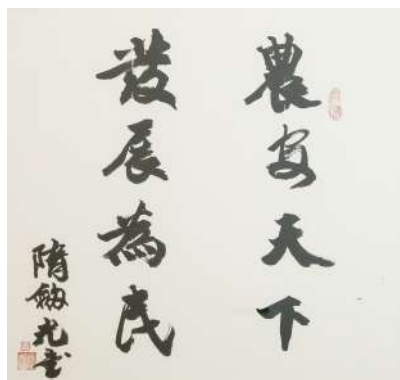 農安天下
發展為民
隋劔光书